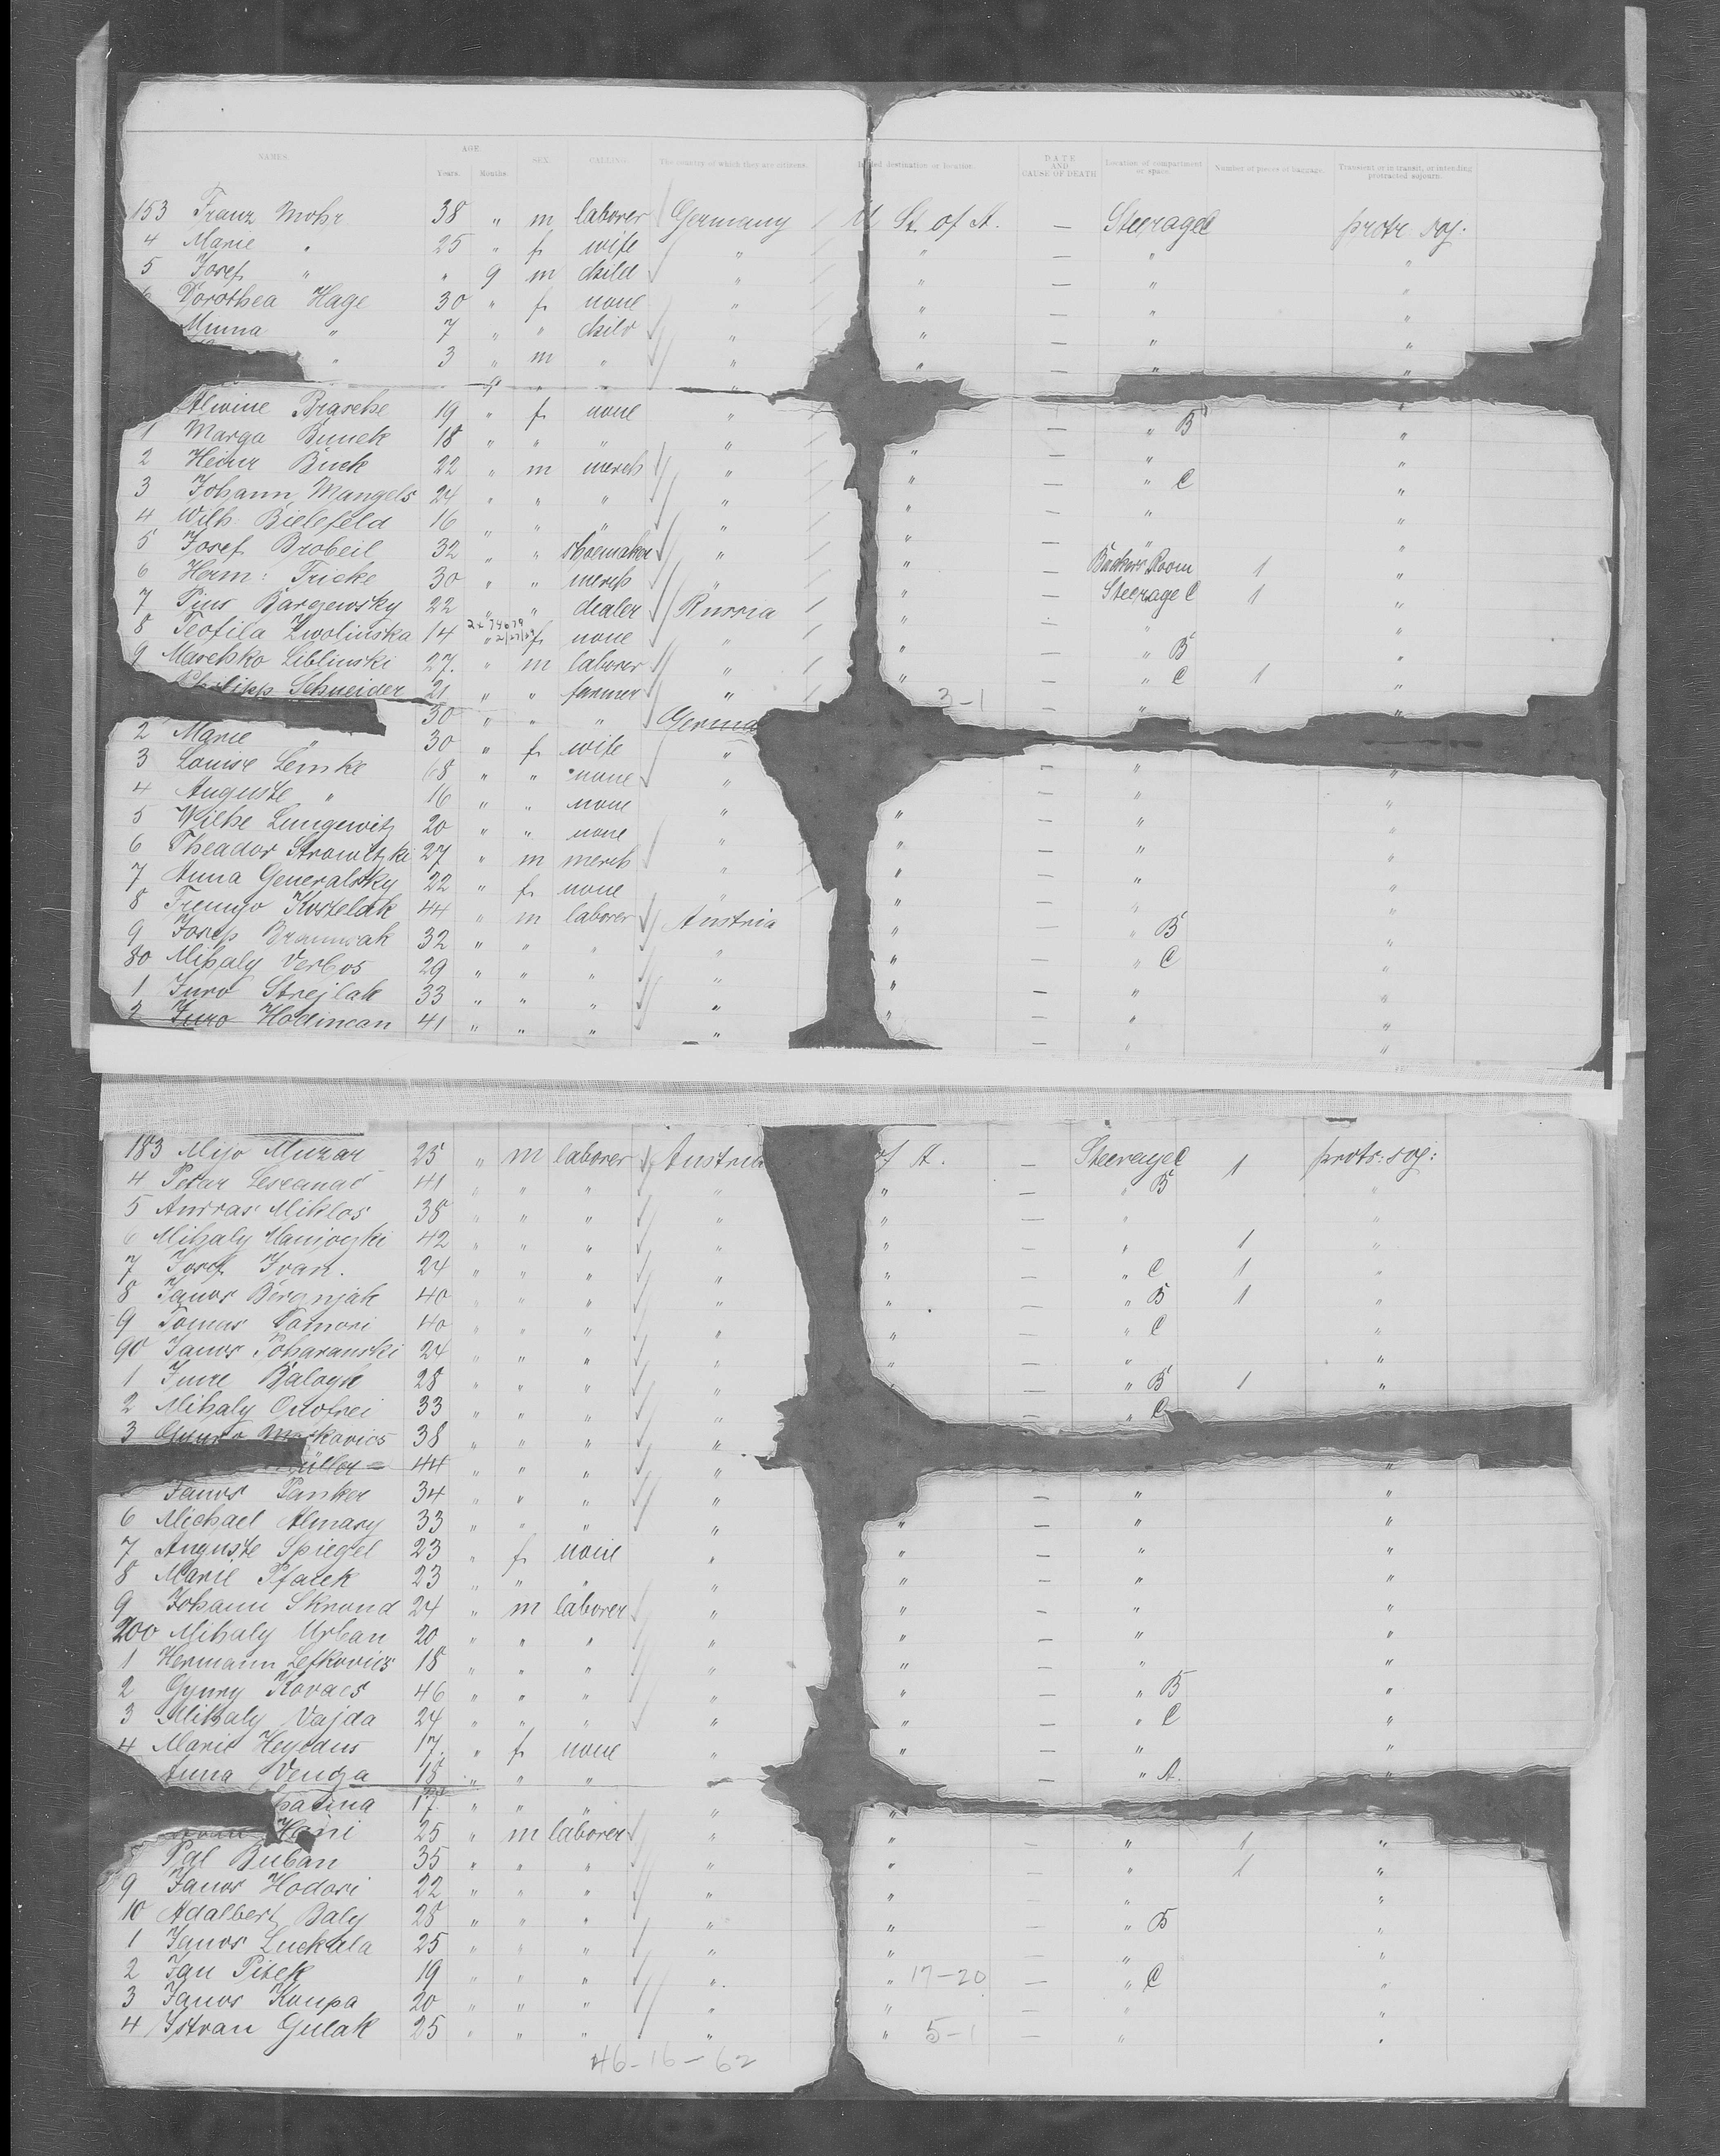 NAMES. AGE. Years. Months. SEX. CALLING. The country of which they are citizens. destination or location. DATE AND CAUSE OF DEATH Location of compartment or space. Number of pieces of baggage. Transient or in transit, or intending protracted sojourn.
153 Franz Mohr 38 " m laborer Germany U St. of A. — Steerage C protr soj:
4 Marie " 25 " f wife " " — " "
5 Josef " " 9 m child " " — " "
Dorothea Hage 30 " f none " " — " "
Minna " 7 " " child " " — " "
" 3 " m " " " — " "
9 " " "
Alwine Braseke 19 " f none " — " B "
1 Marga Bunck 18 " " " " " — " "
2 Heinr Buck 22 " m merch " " — " C "
3 Johann Mangels 24 " " " " " — " "
4 Wilh. Bielefeld 16 " " " " " — " "
5 Josef Brobeil 32 " " shoemaker " " — Backers Room 1 "
6 Herm: Fricke 30 " " merch " " — Steerage C 1 "
7 Pius Bargewsky 22 " " dealer Russia " — " "
8 Teofila Zwolinska 14 " f none " " — " B "
9 Maschko Liblinski 27. " m laborer " " — " C 1 "
Philipp Schneider 21 " " farmer " 3-1 — " "
30 " " " Germa
2 Marie " 30 " f wife " — " "
3 Louise Lemke 68 " " none " — " "
4 Auguste " 16 " " none " " — " "
5 Wilhe Lungewitz 20 " " none " " — " "
6 Theodor Strowitzki 27 " m merch " " — " "
7 Anna Generalsky 22 " f none " " — " "
8 Kostelak 44 " m laborer Austria " — " B "
9 Josep 32 " " " " " — " C "
80 Mihaly Verbos 29 " " " " " — " "
1 Juro Strejlak 33 " " " " " — " "
2 Juro Hodincan 41 " " " " — " "
183 Mijo Muzar 25 " m laborer Austria of A. — Steerage C 1 protr: soj:
4 Petar 41 " " " " " — " B "
5 Andras Miklos 38 " " " " " — " "
6 Mihaly 42 " " " " " — " 1 "
7 Josef Ivan. 24 " " " " " — " C 1 "
8 Janos Bérgnjak 40 " " " " " — " B 1 "
9 Tomas Tamori 40 " " " " " — " C "
90 Janos Poharanski 24 " " " " " — " "
1 Imre Balogh 28 " " " " — " B 1 "
2 Mihaly Onofrei 33 " " " " — " C
3 Markovics 38 " " " "
Müller 44 " " " " "
Janos Panker 34 " " " " — " "
6 Michael Almasy 33 " " " " " — " "
7 Auguste Spiegel 23 " f none " " — " "
8 Marie Pfalek 23 " " " " " — " "
9 Johann Sknond 24 " m laborer " " — " "
200 Mihaly Urban 20 " " " " " — " "
1 Hermann Lefkovics 18 " " " " " — " "
2 Gyury Kovacs 46 " " " " " — " B "
3 Mihaly Vajda 24 " " " " " — " C "
4 Marie Hegedus 17. " f none " " — " "
Anna Venga 18 " " " — " A. "
17 " " " " "
Hani 25 " m laborer " " — " 1 "
8 Pal Buban 35 " " " " " — " 1 "
9 Janos Hodosi 22 " " " " " — " "
10 Adalbert Baly 28 " " " " " — " B "
1 Janos Luckala 25 " " " " " — " "
2 Jan Pitek 19 " " " " " 17-20 — " C "
3 Janos Koupa 20 " " " " " — " "
4 Istvan Gulak 25 " " " " " 5-1 — " "
46-16-62